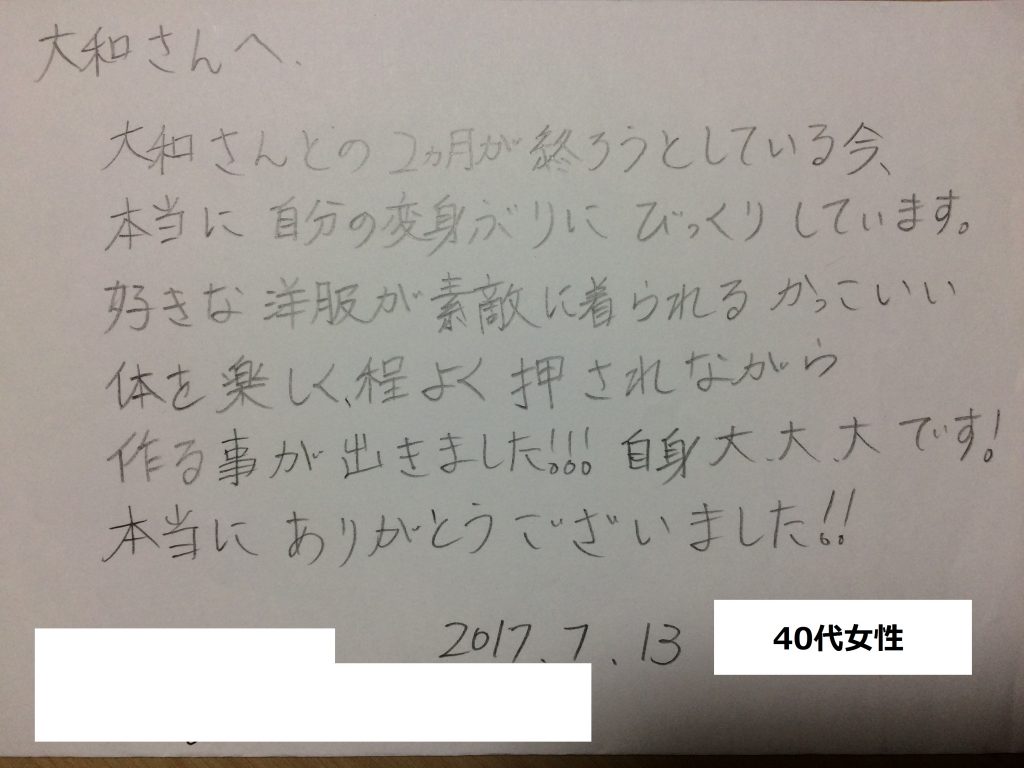 大和さんへ、
大和さんとの2ヵ月が終ろうとしている今、
本当に自分の変身ぶりにびっくりしています。
好きな洋服が素敵に着られるかっこいい
体を楽しく、程よく押されながら
作る事が出きました!!! 自身大、大、大です!
本当にありがとうございました!!
2017.7.13
40代女性